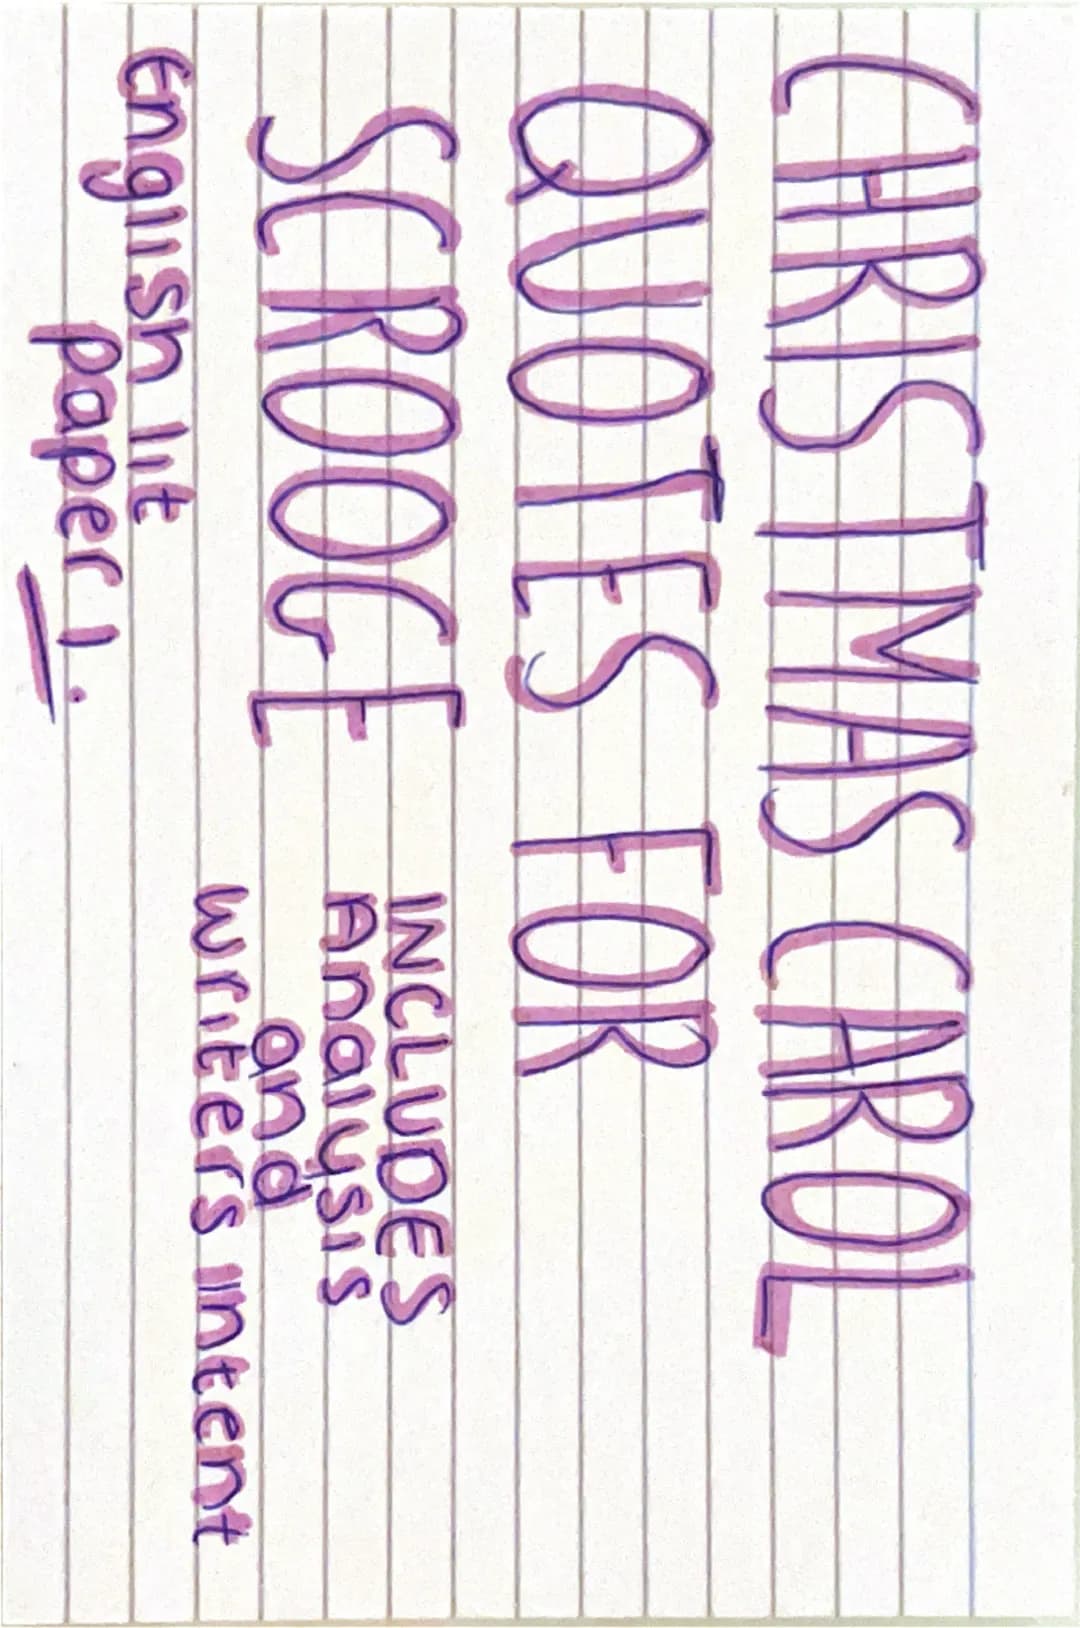 CHRISTMAS CAROL
QUOTES FOR
SCROOGE
INCLUDES
Analysis
and
writers intent
English lit
paper 1.